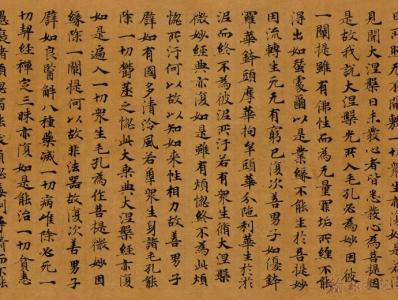 見開大涅槃日未發心者皆悉發心為菩提因
是故我說大涅槃光所入毛孔必為妙因彼
一闡提雖有佛性而為無量罪垢所纏不能
得出如蠶處繭以是業緣不能生於菩提妙
因流轉生死无有窮已復次善男子如優鉢
羅華鉢頭摩華拘牟頭華分陁利華生於淤
泥而終不為彼泥所汙若有衆生脩大涅槃
微妙經典亦復如是雖有煩惱終不為此煩
惱所汙何以故以知如來性相力故善男子
譬如有國多清泠風若觸衆生身諸毛孔能
除一切鬱蒸之惱此大乘典大涅槃經亦復
如是遍入一切衆生毛孔為作菩提微妙因
緣除一闡提何以故非法器故復次善男子
譬如良醫解八種藥滅一切病唯除必死一
切契經禪定三昧亦復如是能治一切貪恚